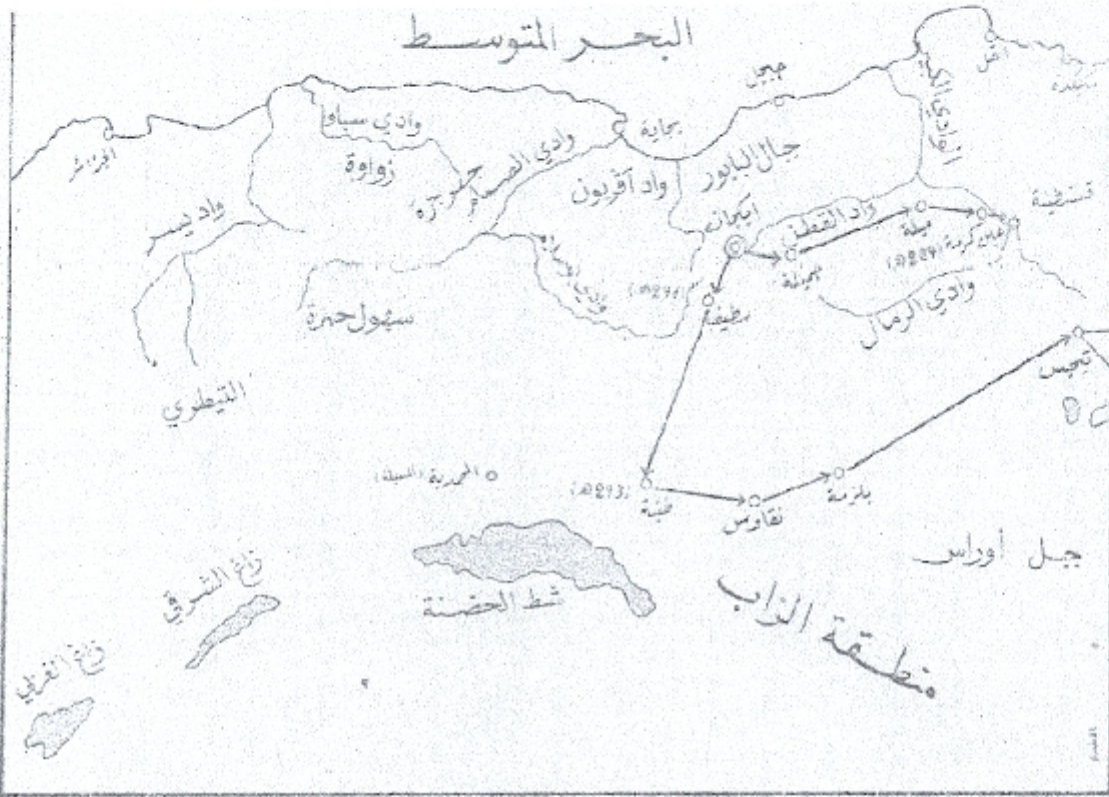 البحر المتوسط
جيجل
القل
سكيكدة
الجزائر
وادي سباو
زواوة
بجاية
وادي الصمام
جرجرة
واد آقريون
جبال البابور
الوادي الكبير
قسنطينة
واد يسر
ايكجان
واد القطن
ميلة
جميلة
(289هـ)
سطيف
وادي الرمال
سهول حمزة
التيطري
تيجس
المحمدية (المسيلة)
(293هـ)
طبنة
نقاوس
بلزمة
جبل أوراس
شط الحضنة
زاغ الشرقي
زاغ الغربي
منطقة الزاب